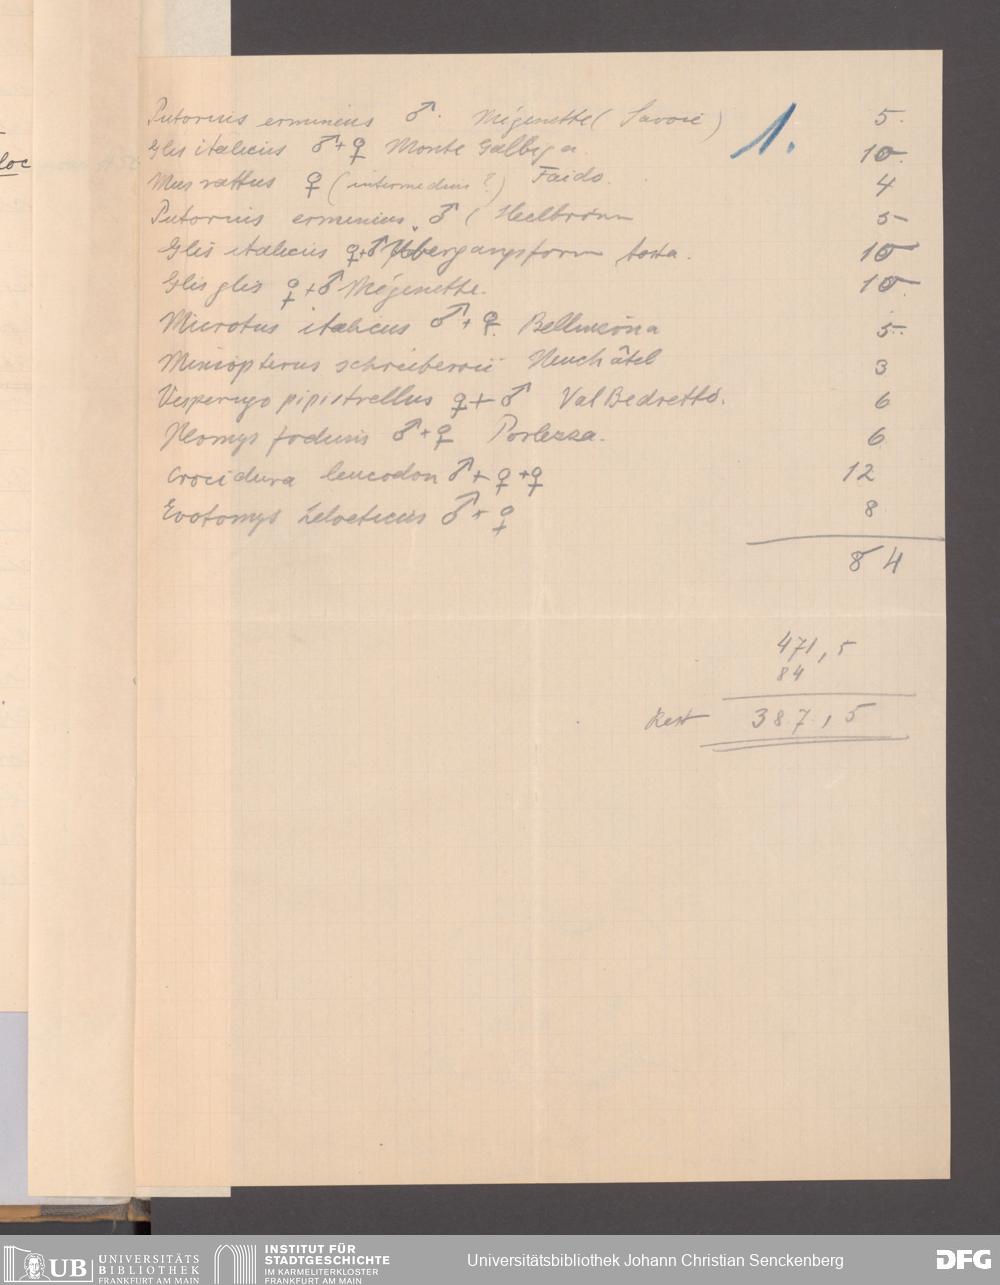 loc
Putorius ermineus ♂. Mégenette (Savoie) 5.
1.
Glis italicus ♂+♀ Monte Galbiga. 10.
Mus rattus ♀ (intermedius?) Faido. 4
Putorius ermineus, ♂ (Heilbronn 5
Glis italicus ♀+♂ Übergangsform 10
Glis glis ♀+♂ Mégenette. 10.
Microtus italicus ♂+♀ Bellinzona 5.
Miniopterus schreibersii Neuchâtel 3
Vesperugo pipistrellus ♀+♂ Val Bedretto. 6
Neomys fodiens ♂+♀ Porlezza. 6
Crocidura leucodon ♂+♀+♀ 12
Evotomys helveticus ♂+♀ 8
84
471,5
84
Rest 387,5
UB UNIVERSITÄTS BIBLIOTHEK FRANKFURT AM MAIN
INSTITUT FÜR STADTGESCHICHTE IM KARMELITERKLOSTER FRANKFURT AM MAIN
Universitätsbibliothek Johann Christian Senckenberg
DFG